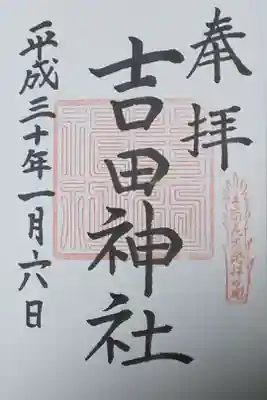 奉拝
吉田神社
平成三十年一月六日